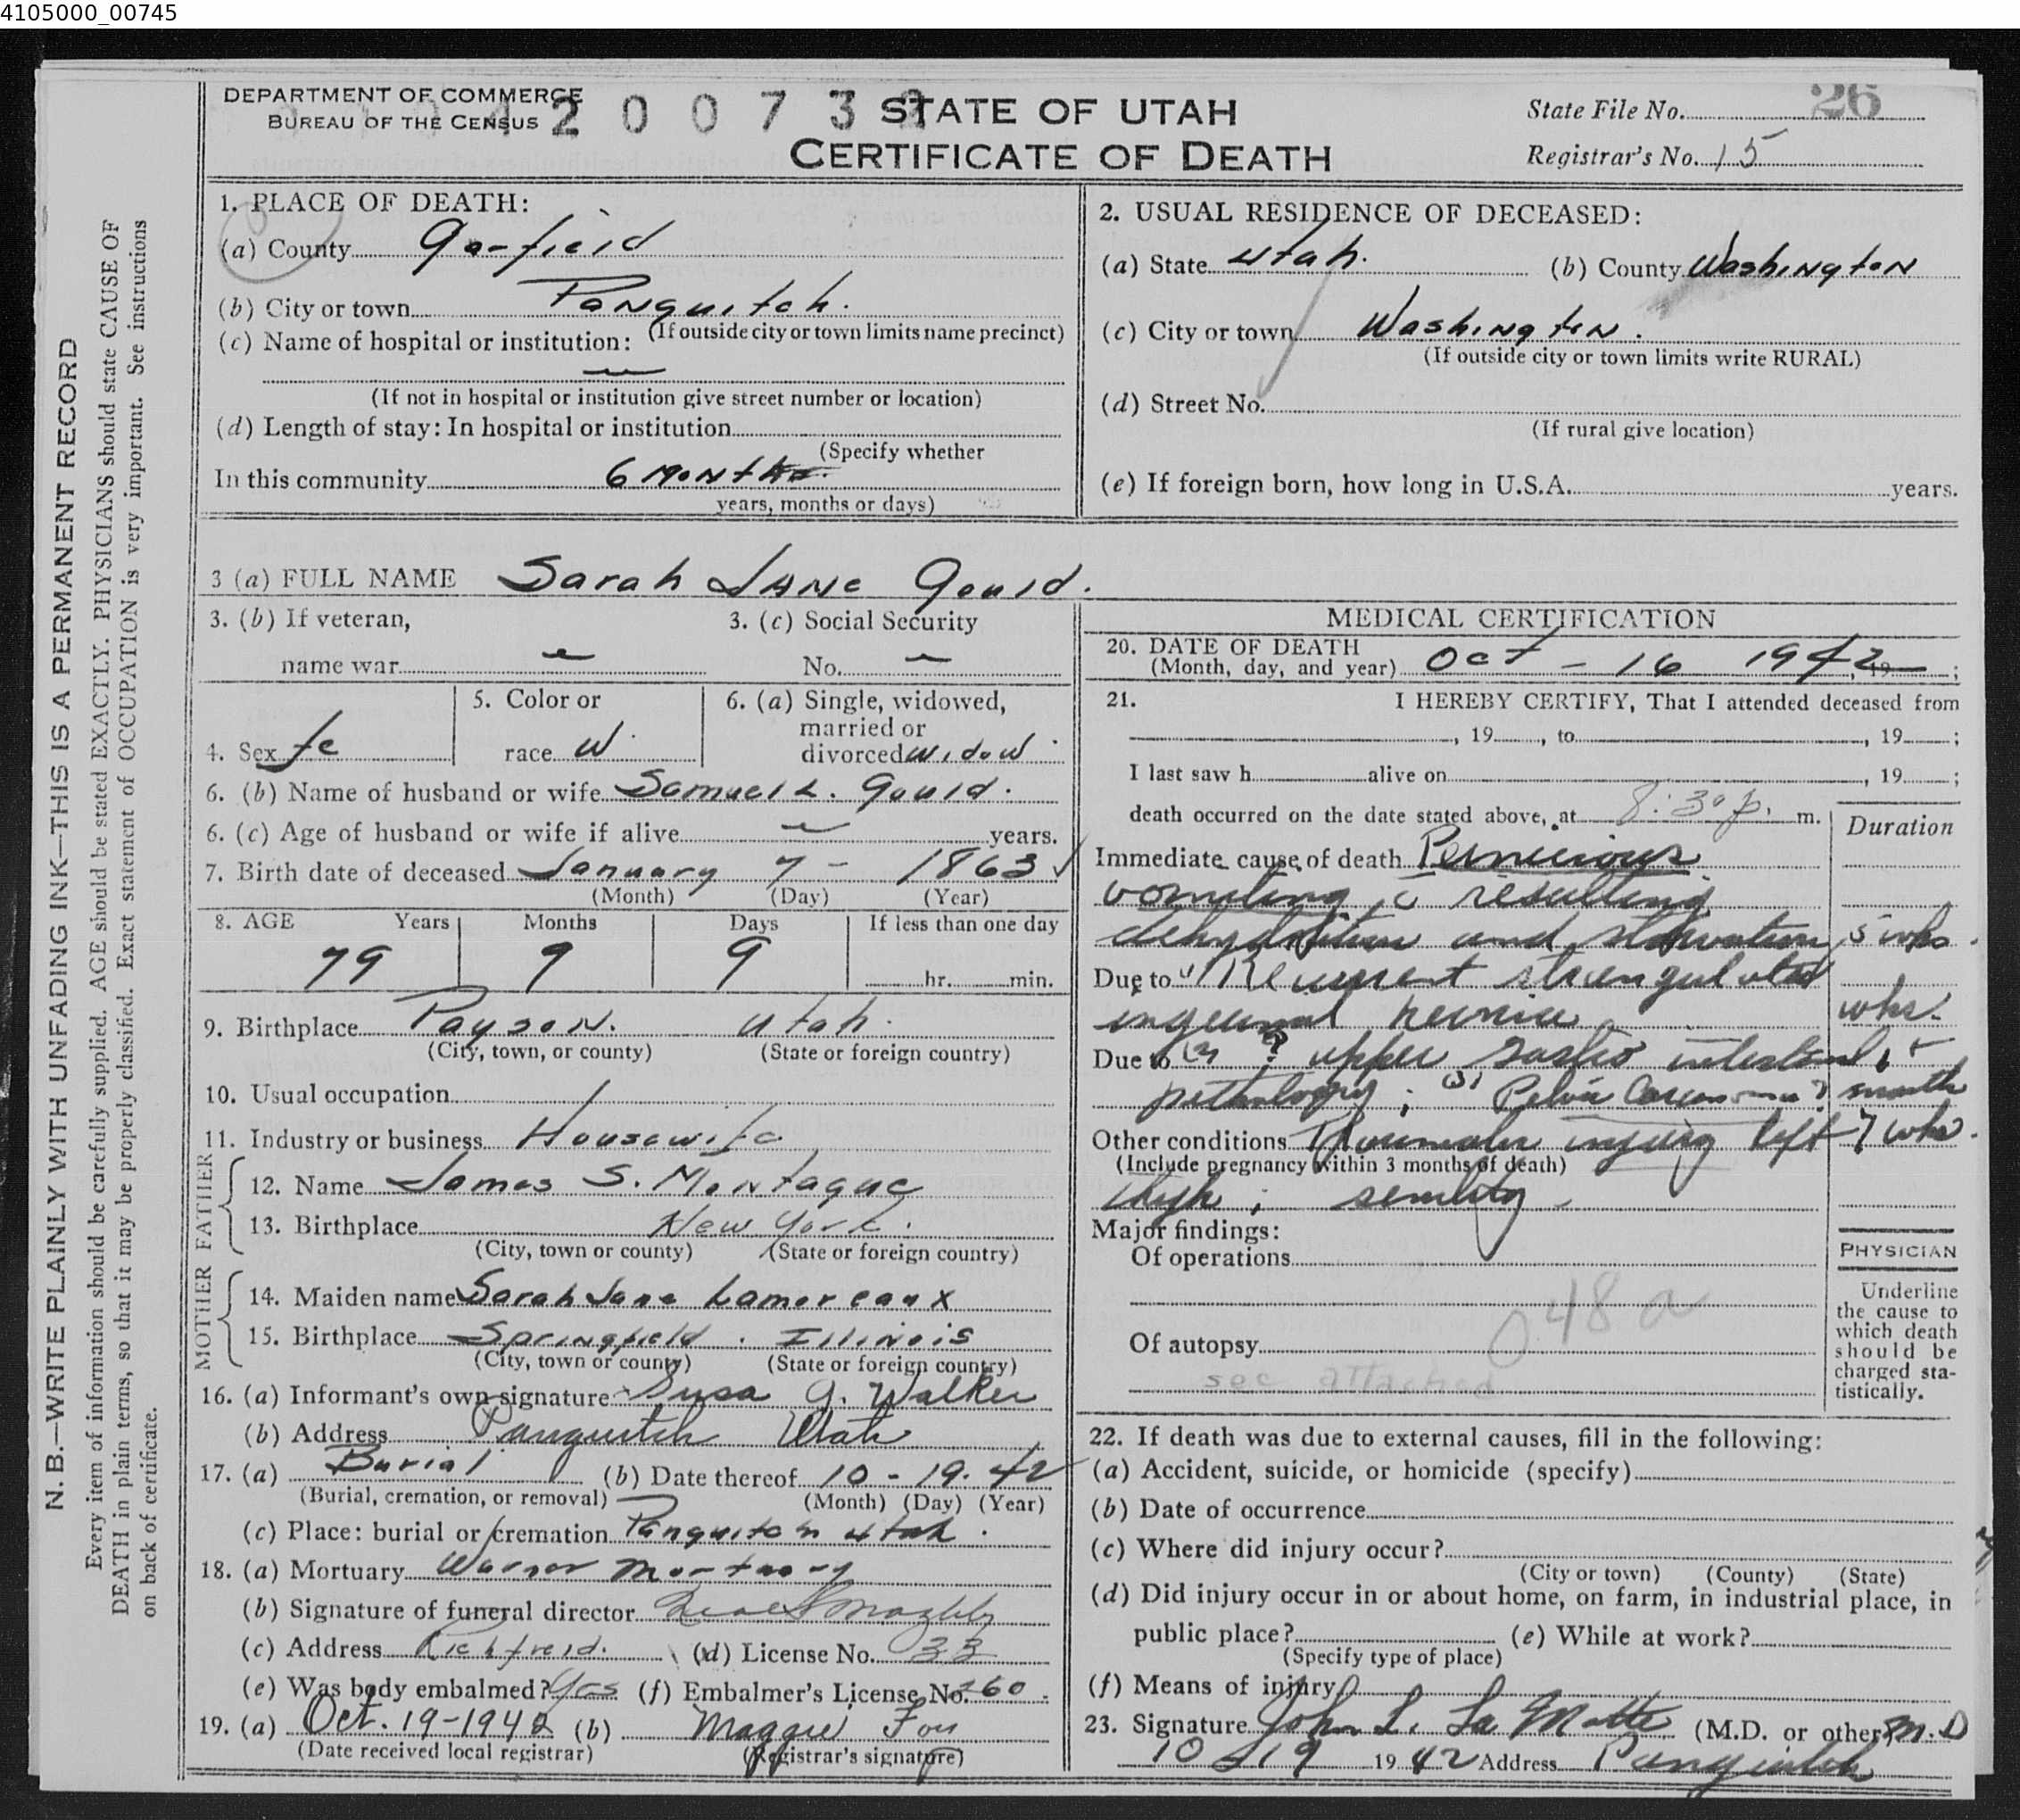 4105000_00745
DEPARTMENT OF COMMERCE
BUREAU OF THE CENSUS
4 2 0 0 7 3
STATE OF UTAH
CERTIFICATE OF DEATH
State File No. 26
Registrar's No. 15
N. B.—WRITE PLAINLY WITH UNFADING INK—THIS IS A PERMANENT RECORD
Every item of information should be carefully supplied. AGE should be stated EXACTLY. PHYSICIANS should state CAUSE OF
DEATH in plain terms, so that it may be properly classified. Exact statement of OCCUPATION is very important. See instructions
on back of certificate.
1. PLACE OF DEATH:
(a) County Garfield
(b) City or town Panguitch.
(If outside city or town limits name precinct)
(c) Name of hospital or institution:
(If not in hospital or institution give street number or location)
(d) Length of stay: In hospital or institution
(Specify whether
In this community 6 Months.
years, months or days)
2. USUAL RESIDENCE OF DECEASED:
(a) State Utah. (b) County Washington
(c) City or town Washington.
(If outside city or town limits write RURAL)
(d) Street No.
(If rural give location)
(e) If foreign born, how long in U.S.A. years.
3 (a) FULL NAME Sarah Jane Gould.
3. (b) If veteran,
name war
3. (c) Social Security
No.
4. Sex fe
5. Color or
race W
6. (a) Single, widowed,
married or
divorced widow
6. (b) Name of husband or wife Samuel L. Gould.
6. (c) Age of husband or wife if alive years.
7. Birth date of deceased January 7 - 1863
(Month) (Day) (Year)
8. AGE Years Months Days If less than one day
79 9 9 hr. min.
9. Birthplace Payson. Utah.
(City, town, or county) (State or foreign country)
10. Usual occupation
11. Industry or business Housewife
FATHER
12. Name James S. Montague
13. Birthplace New York.
(City, town or county) (State or foreign country)
MOTHER
14. Maiden name Sarah Jane Lamoreaux
15. Birthplace Springfield. Illinois
(City, town or county) (State or foreign country)
16. (a) Informant's own signature Susa G. Walker
(b) Address Panguitch Utah
17. (a) Burial (b) Date thereof 10 - 19. 42
(Burial, cremation, or removal) (Month) (Day) (Year)
(c) Place: burial or cremation Panguitch Utah.
18. (a) Mortuary Warner Mortuary
(b) Signature of funeral director
(c) Address Richfield. (d) License No. 33
(e) Was body embalmed? Yes (f) Embalmer's License No. 260.
19. (a) Oct. 19-1942 (b) Maggie Foy
(Date received local registrar) (Registrar's signature)
MEDICAL CERTIFICATION
20. DATE OF DEATH
(Month, day, and year) Oct - 16 1942, 19 ;
21. I HEREBY CERTIFY, That I attended deceased from
, 19 , to , 19 ;
I last saw h alive on , 19 ;
death occurred on the date stated above, at 8:30 p. m.
Duration
Immediate cause of death Pernicious
vomiting c resulting
dehydration and starvation 5 wks.
Due to (1) Recurrent strangulated
inguinal hernia wks.
Due to (2) ? upper gastro intestinal
pathology; (3) Pelvic Carcinoma? months
Other conditions Traumatic injury left 7 wks.
(Include pregnancy within 3 months of death)
thigh; senility.
Major findings:
Of operations
048 a
Of autopsy
see attached
PHYSICIAN
Underline
the cause to
which death
should be
charged sta-
tistically.
22. If death was due to external causes, fill in the following:
(a) Accident, suicide, or homicide (specify)
(b) Date of occurrence
(c) Where did injury occur?
(City or town) (County) (State)
(d) Did injury occur in or about home, on farm, in industrial place, in
public place? (e) While at work?
(Specify type of place)
(f) Means of injury
23. Signature John L. La Motte (M.D. or other) M.D
10 - 19 1942 Address Panguitch